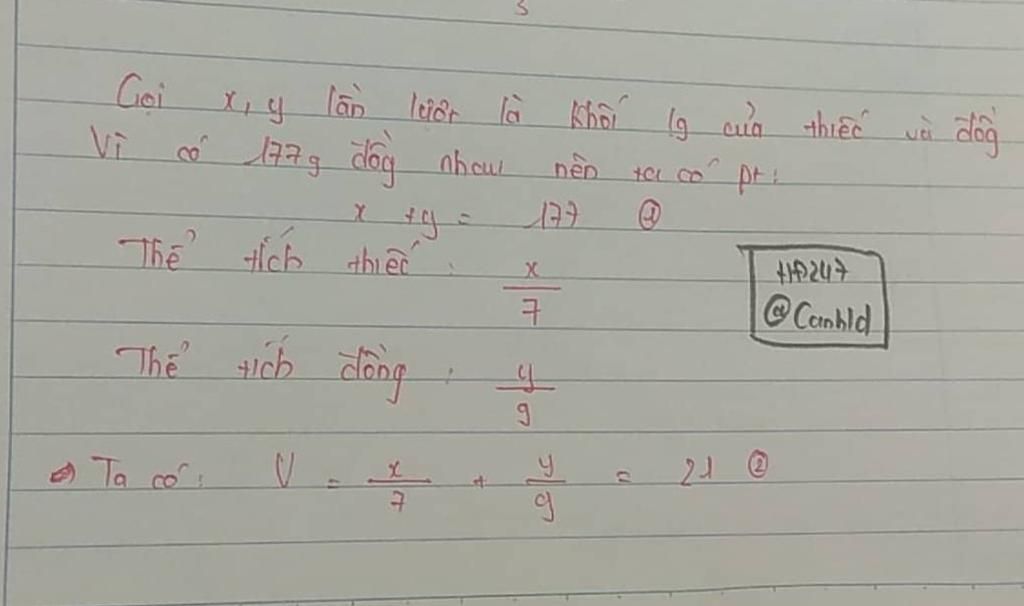 3
Gọi x, y lần lượt là khối lg của thiếc và đồg
Vì có 177g đồg nhau nên ta có pt:
x + y = 177 ①
Thể tích thiếc: x/7
HP247
@Canhld
Thể tích đồng: y/9
=> Ta có: V = x/7 + y/9 = 21 ②